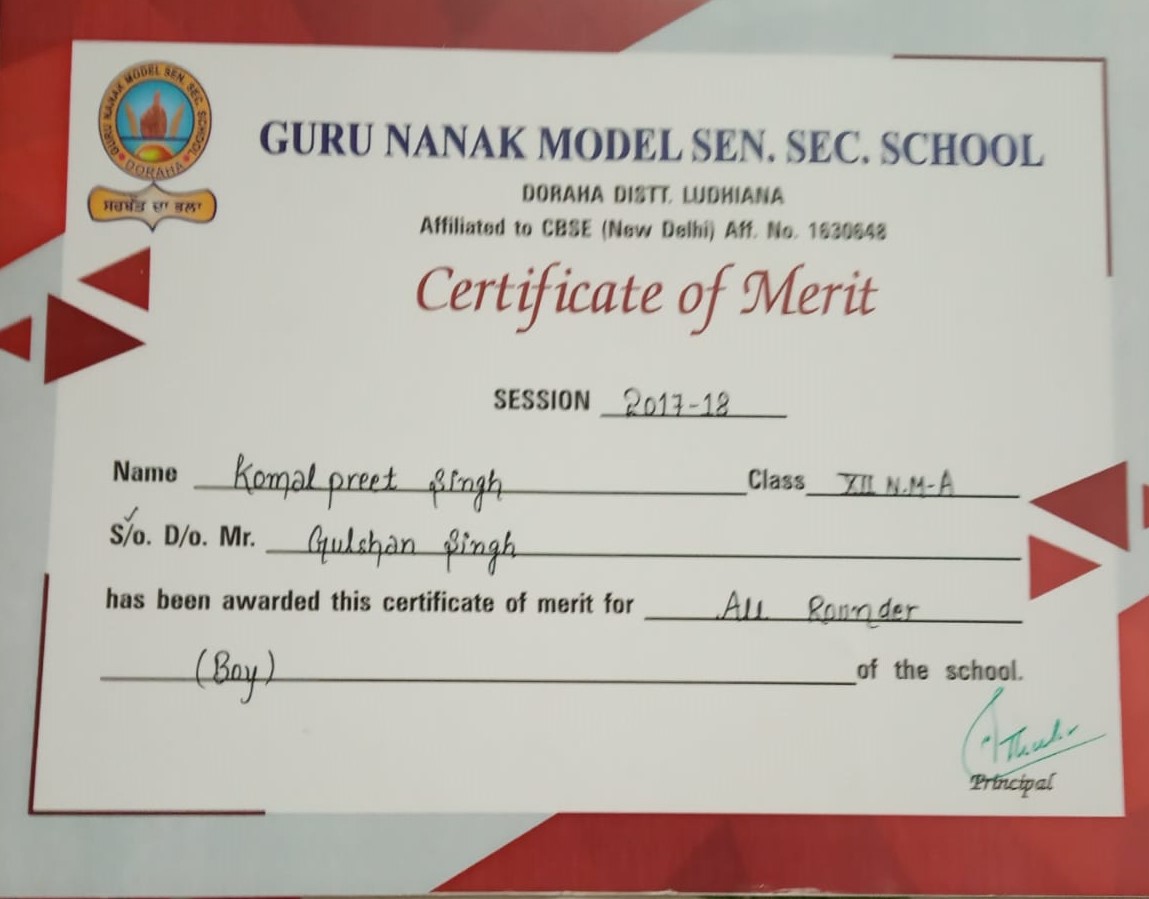 GURU NANAK MODEL SEN. SEC. SCHOOL
DORAHA
ਸਰਬੱਤ ਦਾ ਭਲਾ
GURU NANAK MODEL SEN. SEC. SCHOOL
DORAHA DISTT. LUDHIANA
Affiliated to CBSE (New Delhi) Aff. No. 1630648
Certificate of Merit
SESSION 2017-18
Name Komalpreet Singh Class XII N.M-A
S/o. D/o. Mr. Gulshan Singh
has been awarded this certificate of merit for All Rounder
(Boy) of the school.
Principal